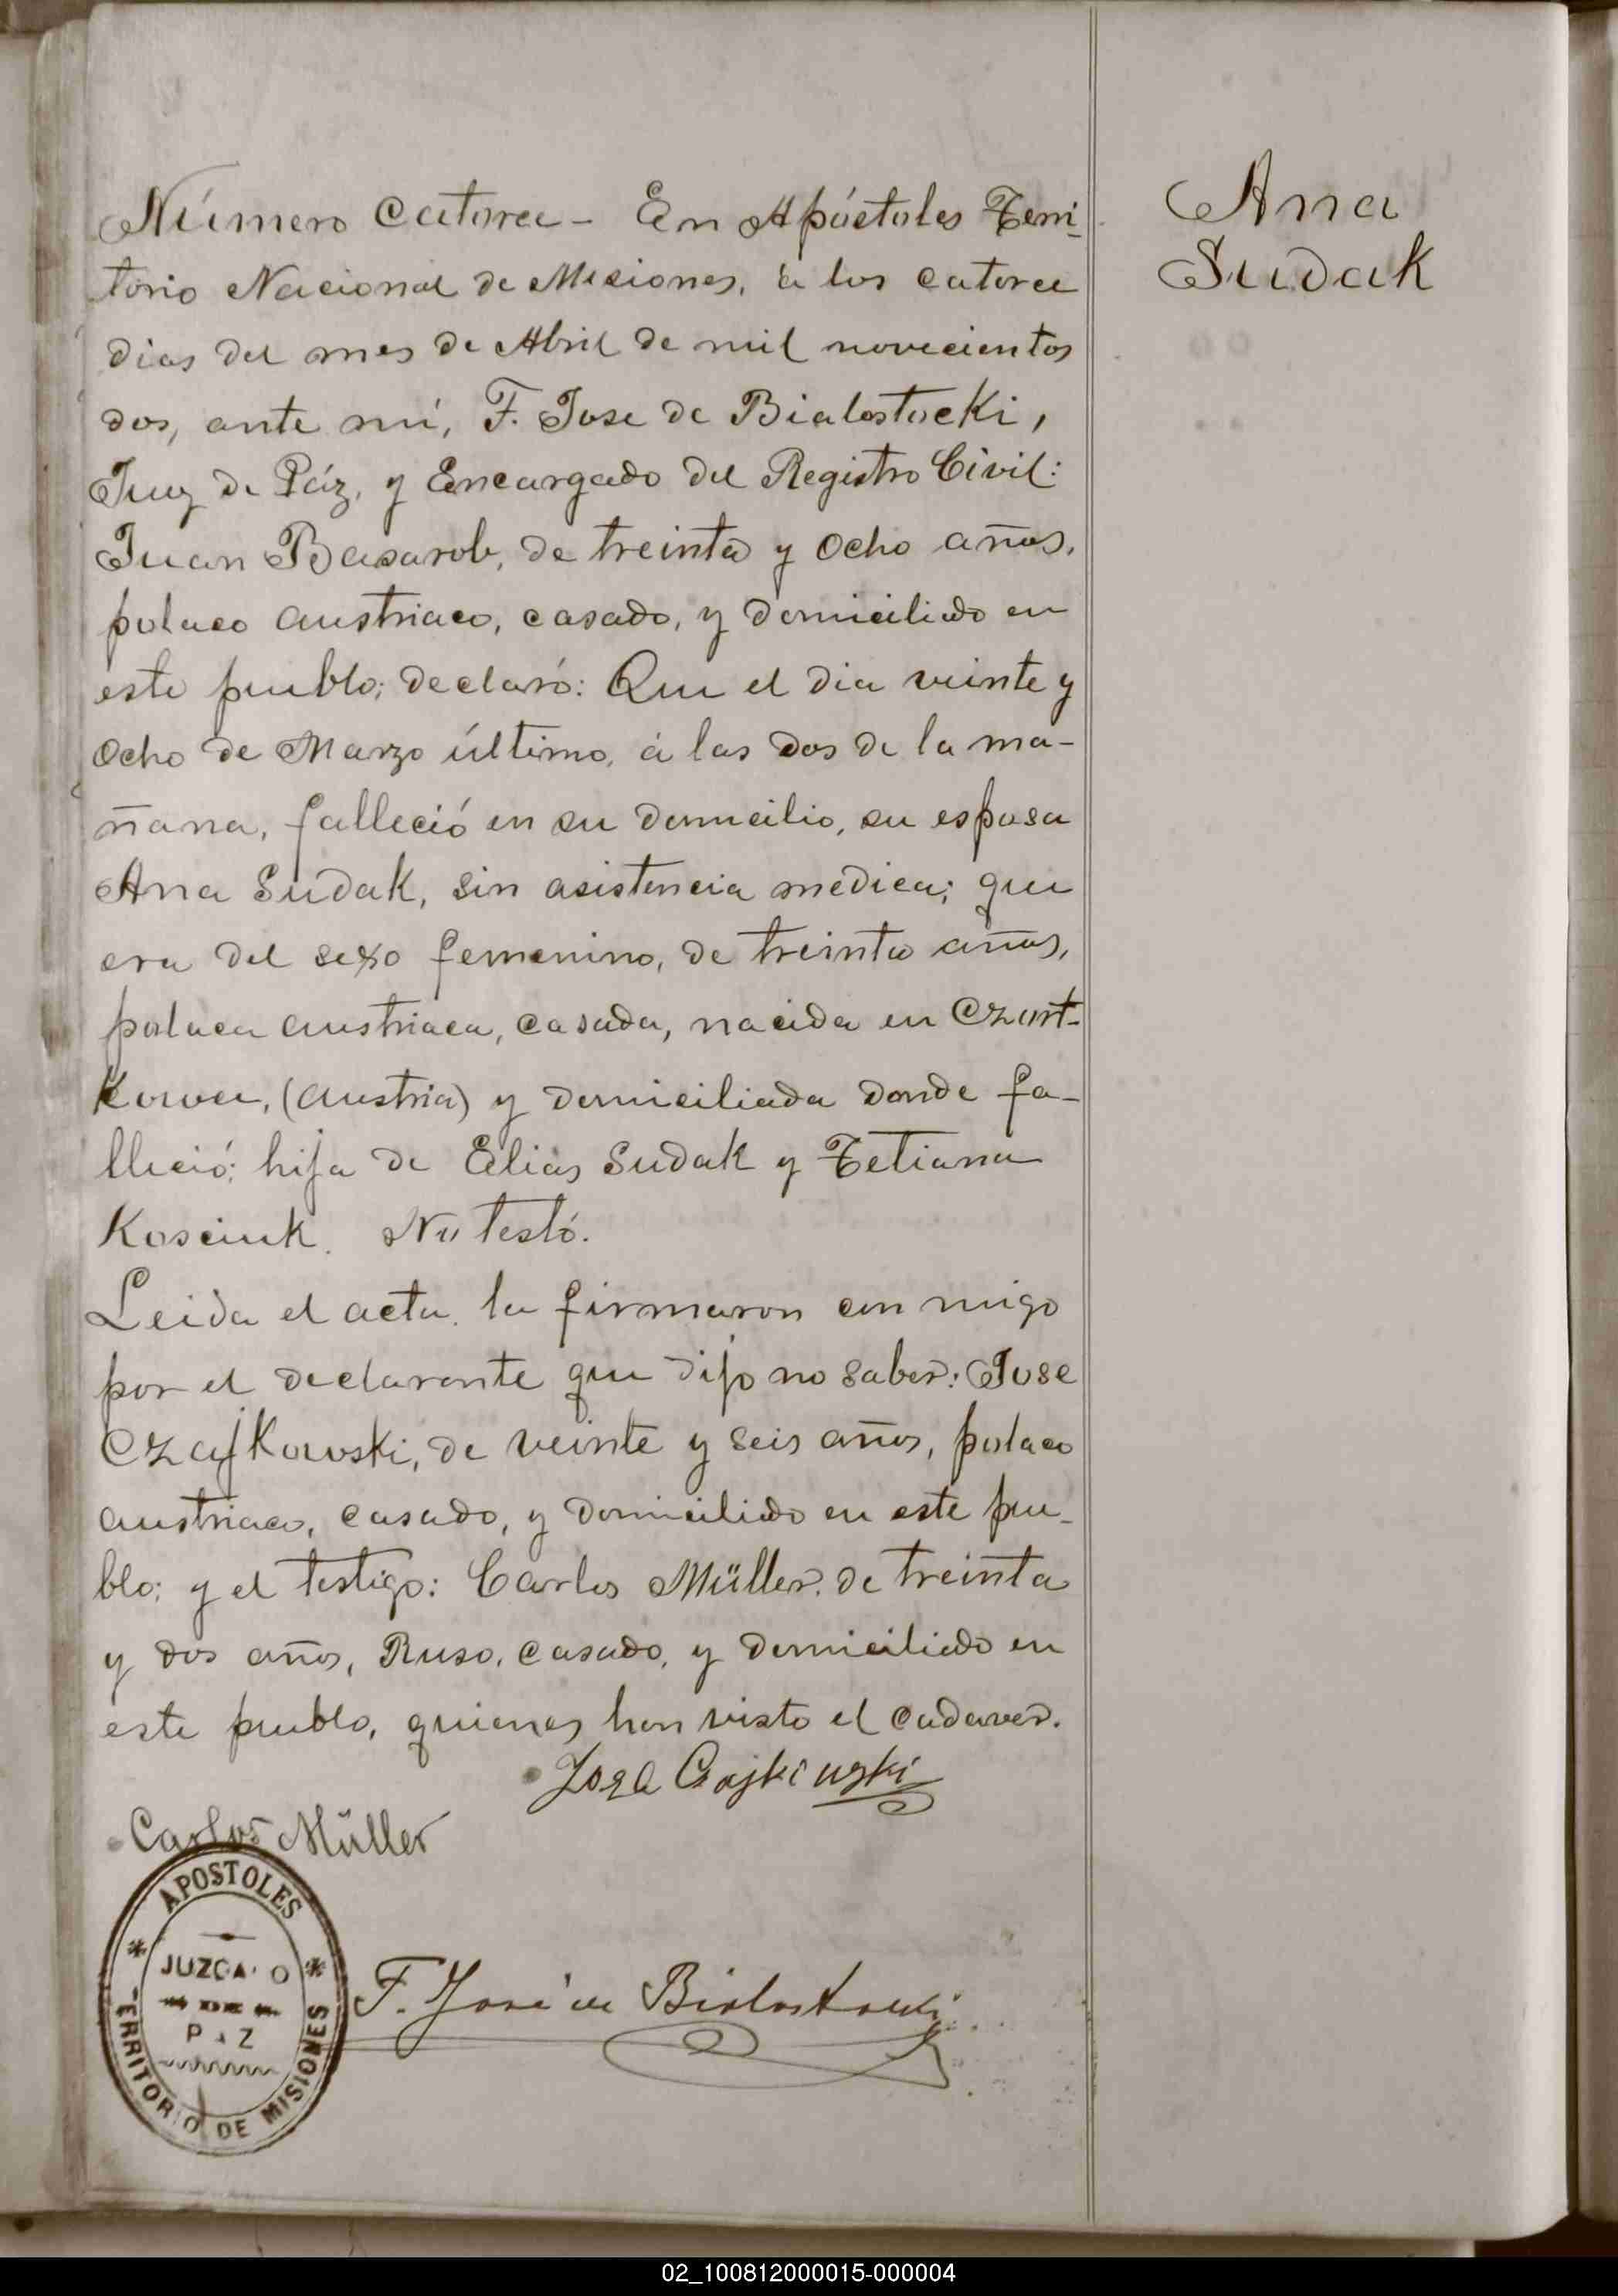 Número Catorce - En Apóstoles Terri-
torio Nacional de Misiones, á los catorce
dias del mes de Abril de mil novecientos
dos, ante mí, F. Jose de Bialostocki,
Juez de Páz, y Encargado del Registro Civil:
Juan Basarob, de treinta y ocho años,
polaco austriaco, casado, y domiciliado en
este pueblo; declaró: Que el dia veinte y
ocho de Marzo último, á las dos de la ma-
ñana, falleció en su domicilio, su esposa
Ana Sudak, sin asistencia medica; que
era del sexo femenino, de treinta años,
polaca austriaca, casada, nacida en Czort-
kowce, (Austria) y domiciliada donde fa-
lleció; hija de Elias Sudak y Tetiana
Kosciuk. No testó.
Leida el acta, la firmaron con migo
por el declarante que dijo no saber: Jose
Czajkowski, de veinte y seis años, polaco
austriaco, casado, y domiciliado en este pue-
blo; y el testigo: Carlos Müller, de treinta
y dos años, Ruso, casado, y domiciliado en
este pueblo, quienes han visto el cadaver.
Carlos Müller
F. José de Bialostocki
APOSTOLES
JUZGADO
DE
PAZ
TERRITORIO DE MISIONES
Ana
Sudak
02_100812000015-000004